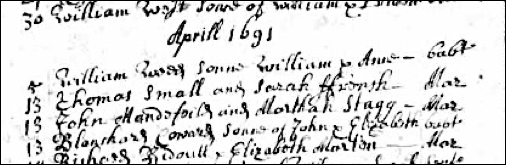 30 William West sonne of William &
Aprill 1691
5 William Weed sonne William & Anne - babt
13 Thomas Small and Sarah ffrensh - Mar
13 John Handsfeild and Marthah Stagg - Mar
13 Blanchard Coward sonne of John & Elizabeth babt
13 Richard Ridoull & Elizabeth Marten - Mar